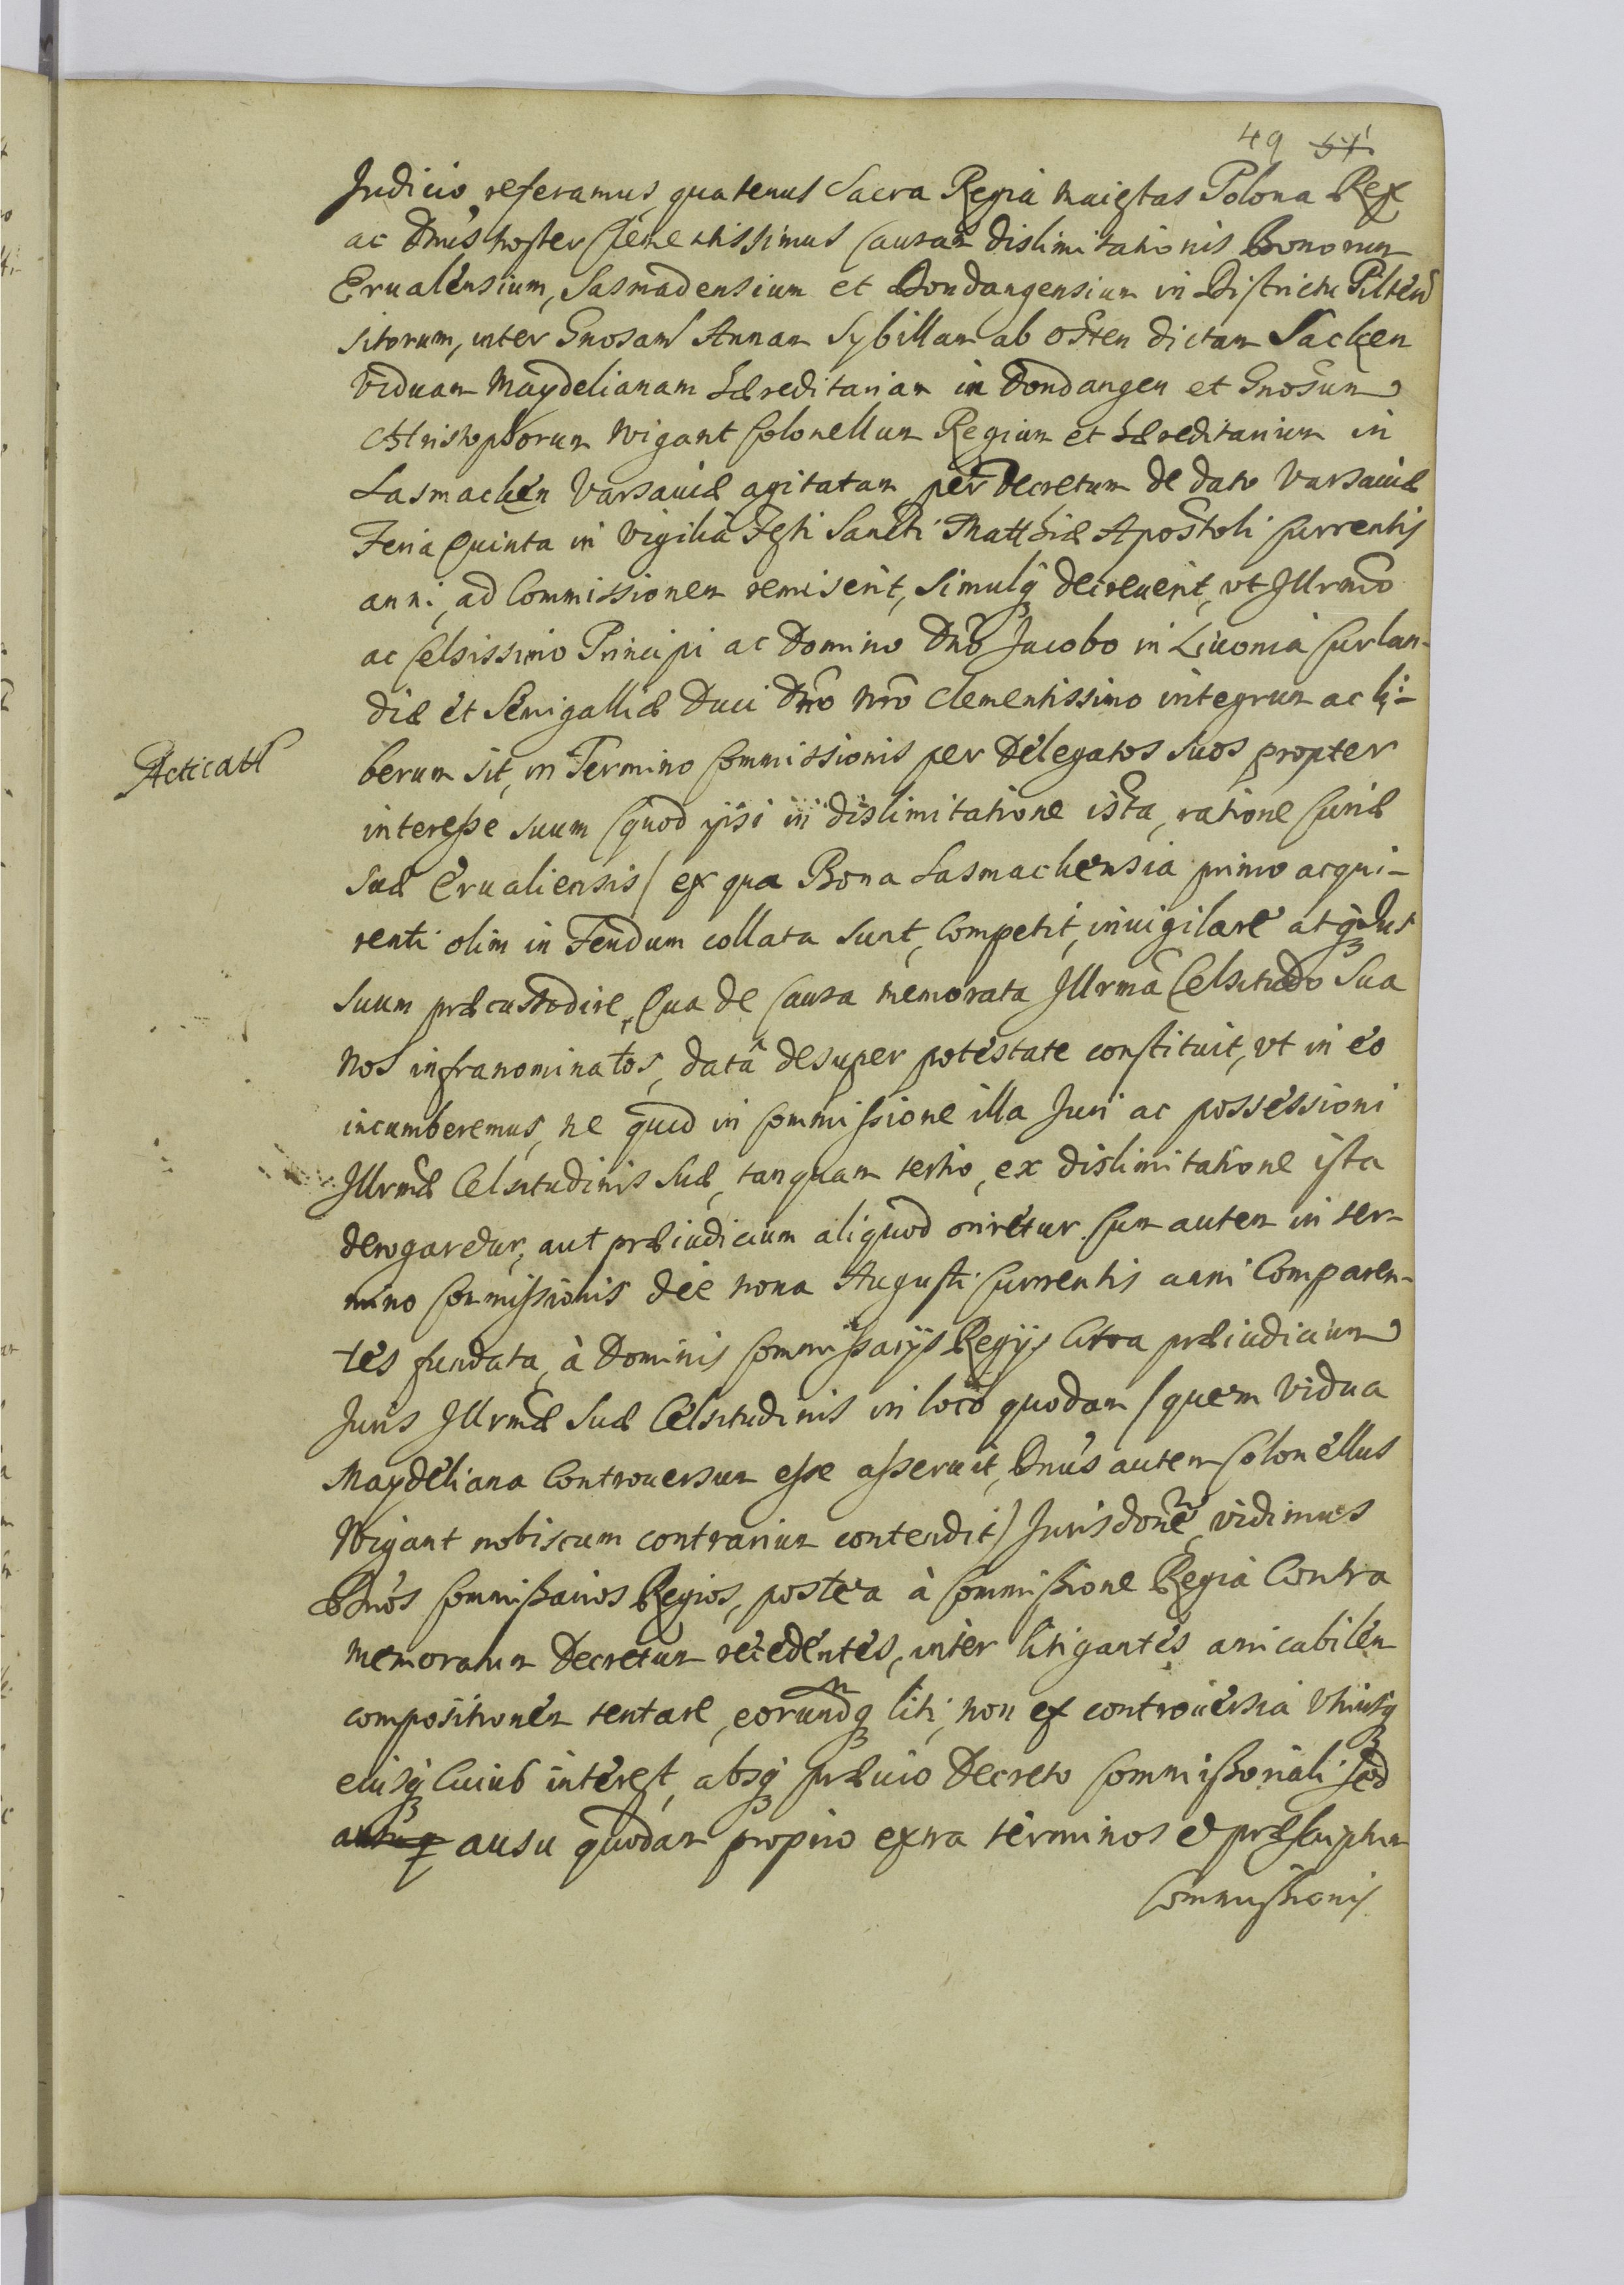 49 51
Judicio referamus, quatenus Sacra Regia Maiestas Polona Rex
ac Dnūs noster Clementissimus causam dislimitationis Bonorum
Erualensium, Sasmadensium et Dondangensium in Districtu Pilteñ
sitorum, inter Gnosam Annam Sybillam ab Osten dictam Sacken
viduam Maydelianam Hæreditariam in Dondangen et Gnosum
Christophorum Wigant Colonellum Regium et Hæreditarium in
Sasmacken Varsaviæ agitatam, per Decretum de dato Varsaviæ
Feria Quinta in Vigilia Festi Sancti Matthiæ Apostoli currentis
anni, ad Commissionem remiserit, simulq decreuerit, vt Illrmo
ac Celsissimo Principi ac Domino Dno Jacobo in Liuonia Curlan-
diæ et Semigalliæ Duci Dno Nro Clementissimo integrum ac li-
berum sit, in Termino Commissionis per Delegatos suos propter
Acticatl
interesse suum (quod ipsi in dislimitatione ista, ratione Curiæ
suæ Erualiensis / ex qua Bona Sasmachensia primo acqui-
renti olim in Feudum collata sunt, competit, inuigilare atq Jus
suum præcustodire, Qua de causa memorata Illrma Celsitudo Sua
nos infranominatos, datâ desuper potestate constituit, vt in eo
incumberemus, ne quid in Commissione illa Juri ac possessioni
Illrmæ Celsitudinis Suæ, tanquam tertio, ex dislimitatione ista
derogaretur, aut præiudicium aliquod oriretur. Cum autem in ter-
mino Commissionis die nona Augusti currentis anni comparen-
tes fundata, à Dominis Commissarijs Regijs citra præiudicium
Juris Illrmæ Suæ Celsitudinis in loco quodam (quem vidua
Maydeliana controuersum esse asseruit, Dnus autem Colonellus
Wigant nobiscum contrarium contendit) Jurisdone, vidimus
Dnos Commissarios Regios, postea à Commissione Regia contra
memoratum Decretum recedentes, inter litigantes amicabilem
compositionem tentare, eorundq liti, non ex controuersia vniusq
eiusq cuius interest, absq præuio Decreto Commissoriali sed
ausu quodam proprio extra terminos & præscriptum
Commissionis